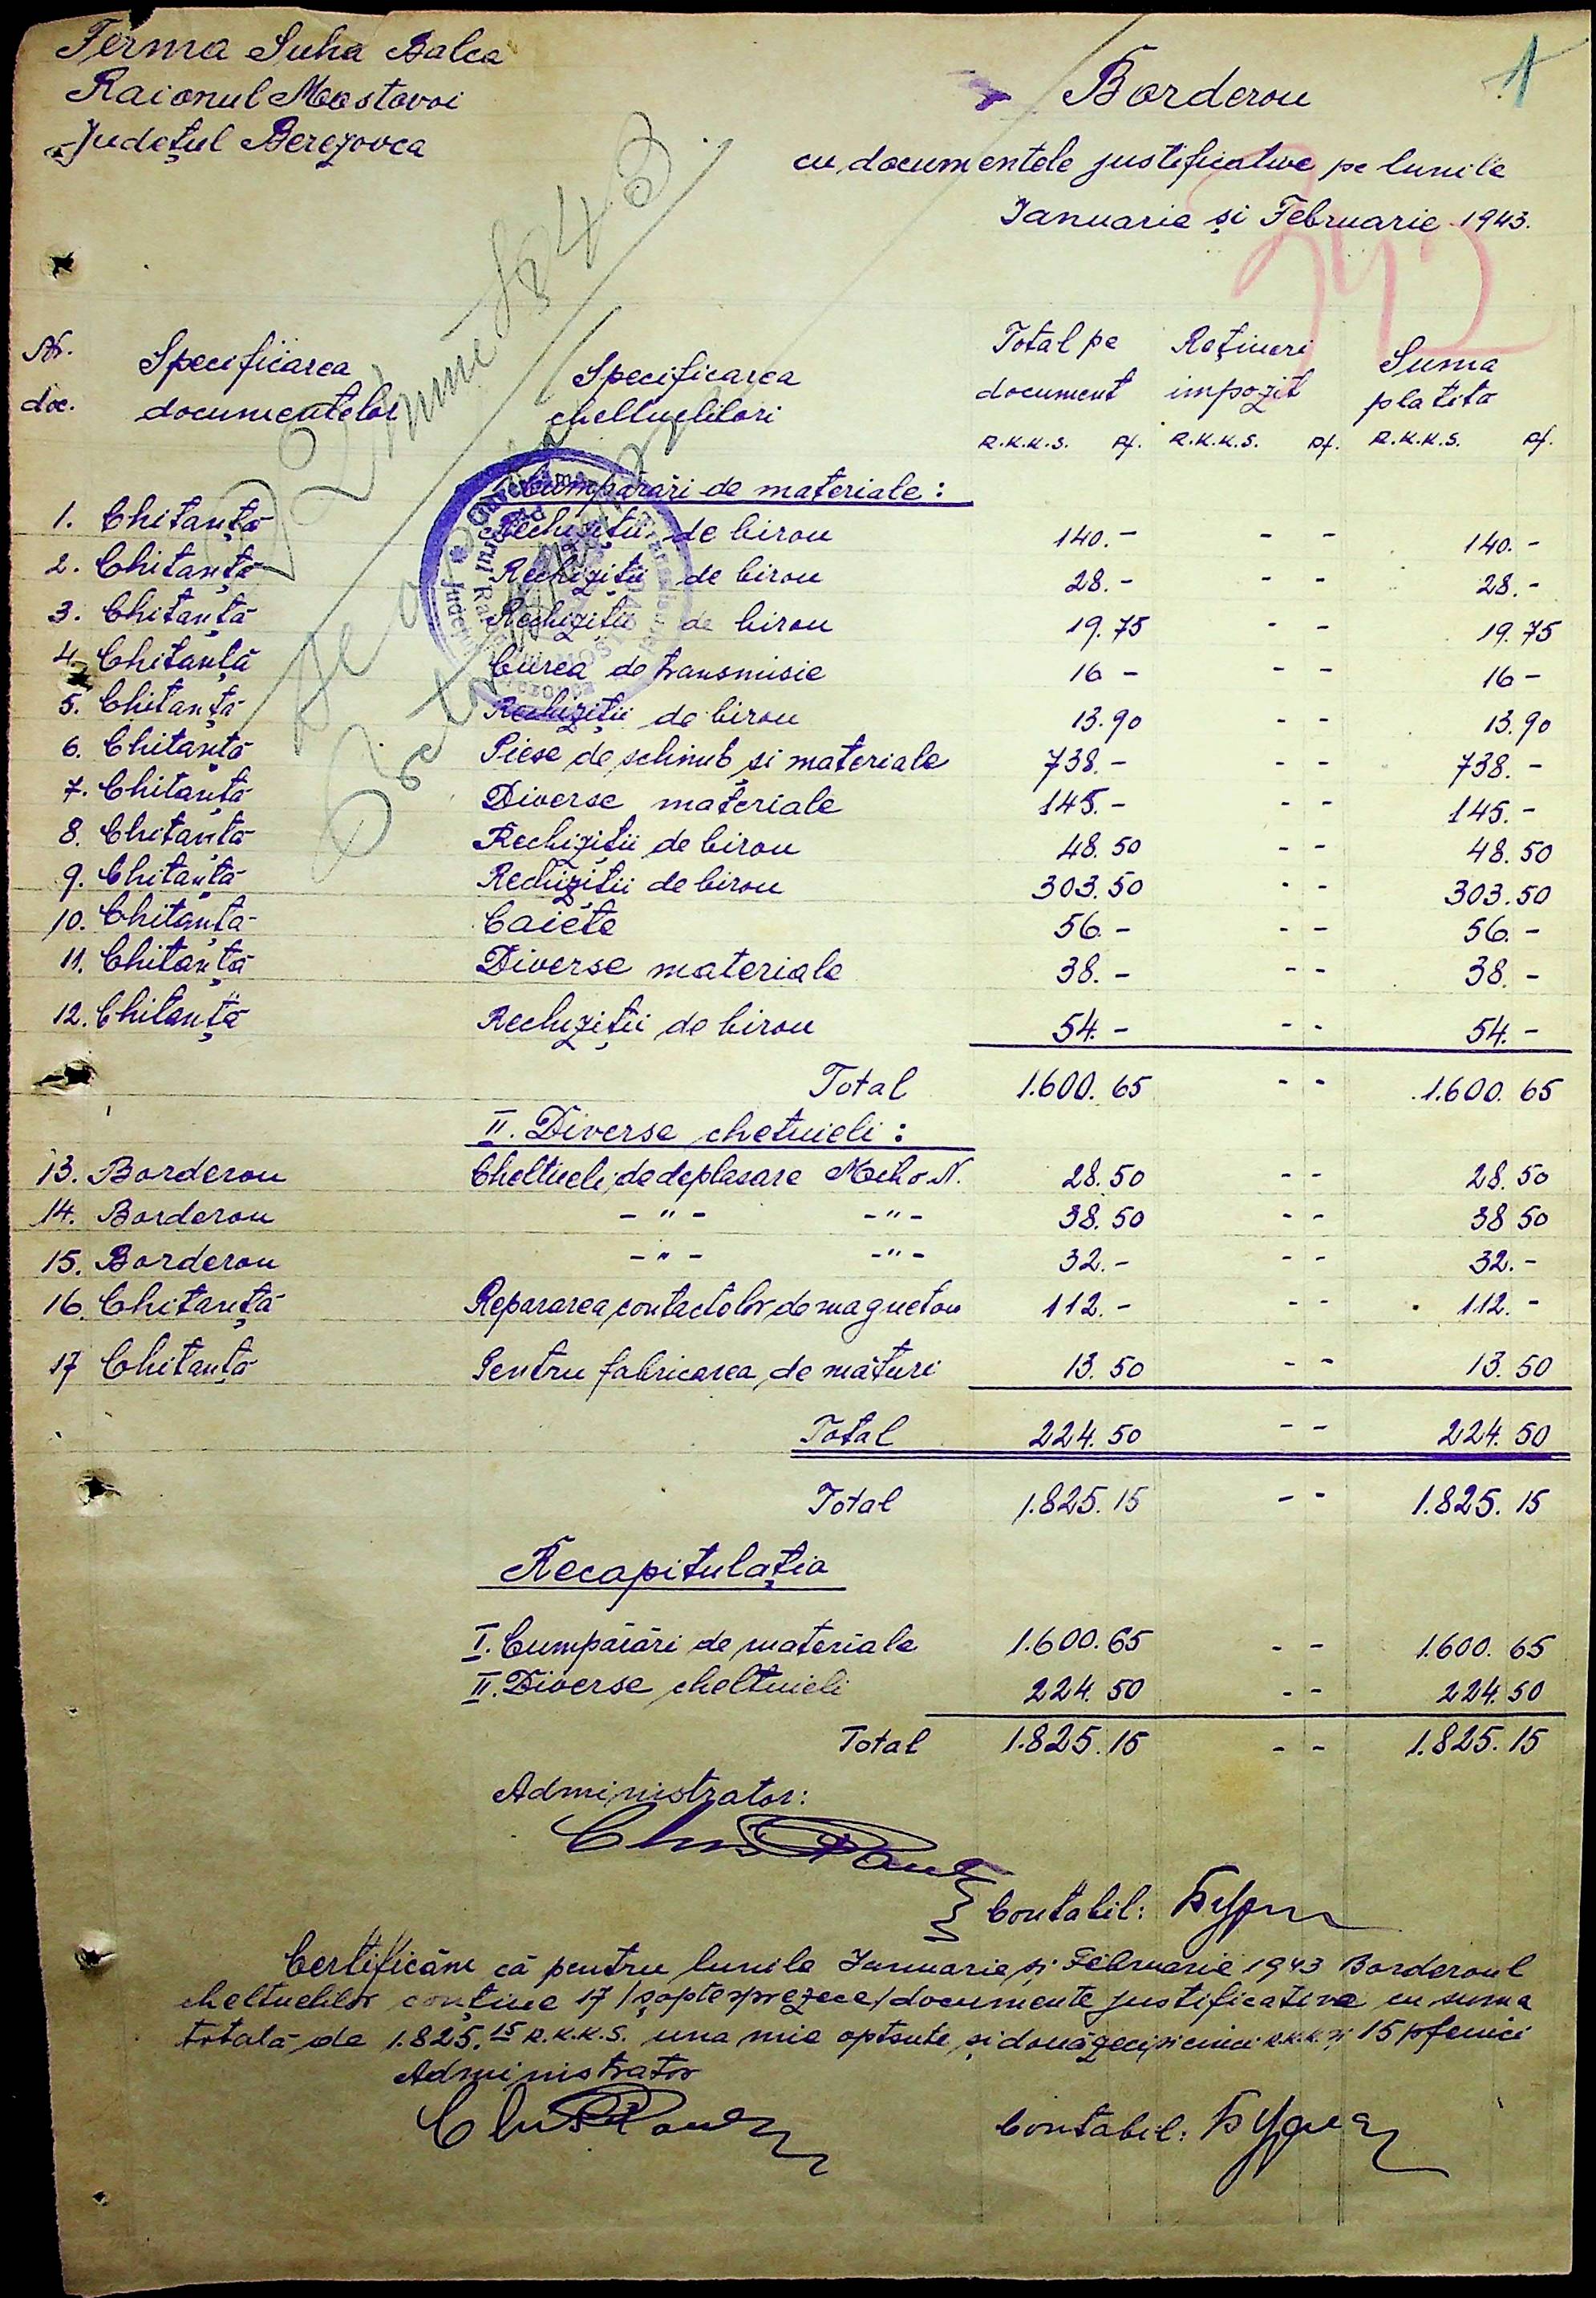 Ferma Suha Balca
Raionul Mostovoi
Județul Berezovca
1
Borderou
cu documentele justificative pe lunile
Ianuarie și Februarie 1943.
Nr. doc.
Specificarea documentelor
Specificarea cheltuelilori
Total pe document
Rețineri impozit
Suma platita
R.K.K.S. Pf. R.K.K.S. Pf. R.K.K.S. Pf.
Cumpărări de materiale:
1. Chitanță Rechiziții de birou 140.- - - 140.-
2. Chitanță Rechiziții de birou 28.- - - 28.-
3. Chitanță Rechiziții de birou 19.75 - - 19.75
4. Chitanță Curea de transmisie 16 - - - 16 -
5. Chitanță Rechiziții de birou 13.90 - - 13.90
6. Chitanță Piese de schimb și materiale 738.- - - 738.-
7. Chitanță Diverse materiale 145.- - - 145.-
8. Chitanță Rechiziții de birou 48.50 - - 48.50
9. Chitanță Rechiziții de birou 303.50 - - 303.50
10. Chitanță Caiete 56.- - - 56.-
11. Chitanță Diverse materiale 38.- - - 38.-
12. Chitanță Rechiziții de birou 54.- - - 54.-
Total 1.600.65 - - 1.600.65
II. Diverse chetuieli:
13. Borderou Cheltueli de deplasare N. 28.50 - - 28.50
14. Borderou - " - - " - 38.50 - - 38 50
15. Borderou - " - - " - 32.- - - 32.-
16. Chitanță Repararea contactolor de magnetou 112.- - - 112.-
17 Chitanță Pentru fabricarea de mături 13.50 - - 13.50
Total 224.50 - - 224.50
Total 1.825.15 - - 1.825.15
Recapitulația
I. Cumpărări de materiale 1.600.65 - - 1.600.65
II. Diverse cheltuieli 224.50 - - 224.50
Total 1.825.15 - - 1.825.15
Administrator:
Contabil:
Certificăm că pentru lunile Ianuarie și Februarie 1943 Borderoul
cheltuelilor conține 17 /șaptesprezece/ documente justificative cu suma
totală de 1.825.15 R.K.K.S. una mie optsute și douăzeci și cinci R.K.K.și 15 pfenici
Administrator
Contabil: